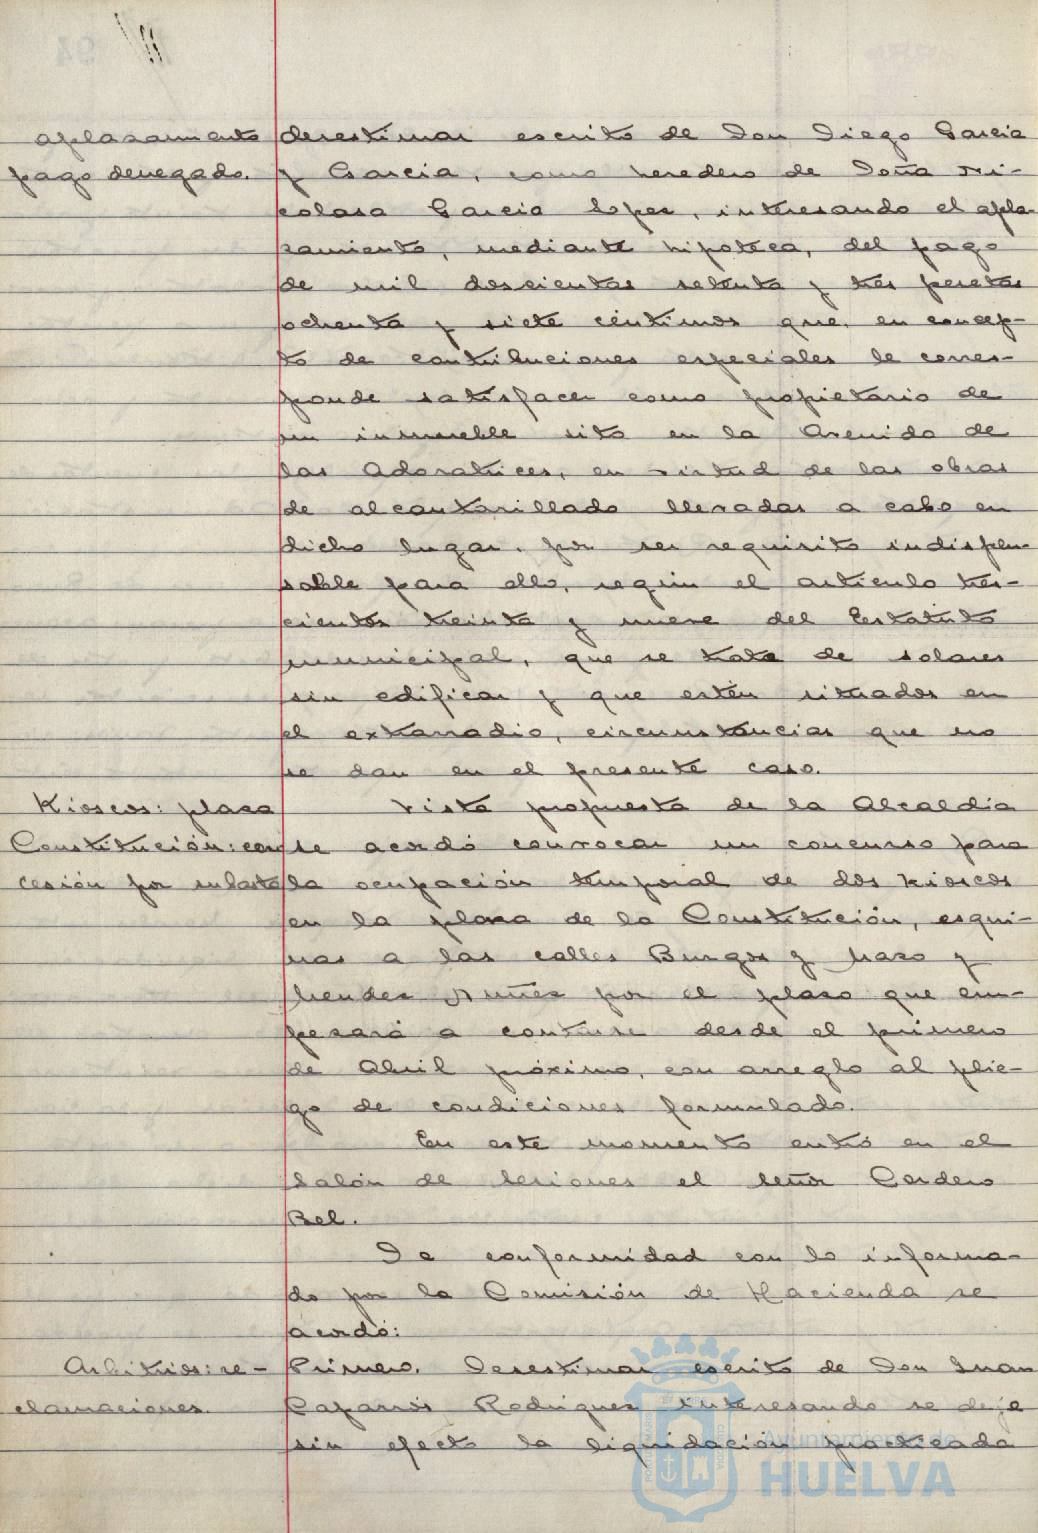 aplasamiento desestimar escrito de Don Diego Garcia
pago denegado. y Garcia, como heredero de Doña Ni-
colasa Garcia Lopez, interesando el apla-
samiento, mediante hipoteca, del pago
de mil doscientas setenta y tres pesetas
ochenta y siete céntimos que, en concep-
to de contribuciones especiales le corres-
ponde satisfacer como propietario de
un inmueble sito en la Avenida de
las Adoratrices, en virtud de las obras
de alcantarillado llevadas a cabo en
dicho lugar, por ser requisito indispen-
sable para ello, según el articulo tres-
cientos treinta y nueve del Estatuto
municipal, que se trate de solares
sin edificar y que estén situados en
el extrarradio, circunstancias que no
se dan en el presente caso.
Kioscos: plasa Vista propuesta de la Alcaldia
Constitución: con- se acordó convocar un concurso para
cesión por subasta la ocupación temporal de dos kioscos
en la plasa de la Constitución, esqui-
nas a las calles Burgos y Maso y
Mendes Nuñes por el plaso que em-
pesará a contarse desde el primero
de Abril próximo, con arreglo al plie-
go de condiciones formulado.
En este momento entró en el
Salón de Sesiones el Señor Cordero
Bel.
De conformidad con lo informa-
do por la Comisión de Hacienda se
acordó:
Arbitrios: re- Primero. Desestimar escrito de Don Juan
clamaciones. Caparrós Rodrigues interesando se deje
sin efecto la liquidación practicada
Ayuntamiento de
HUELVA